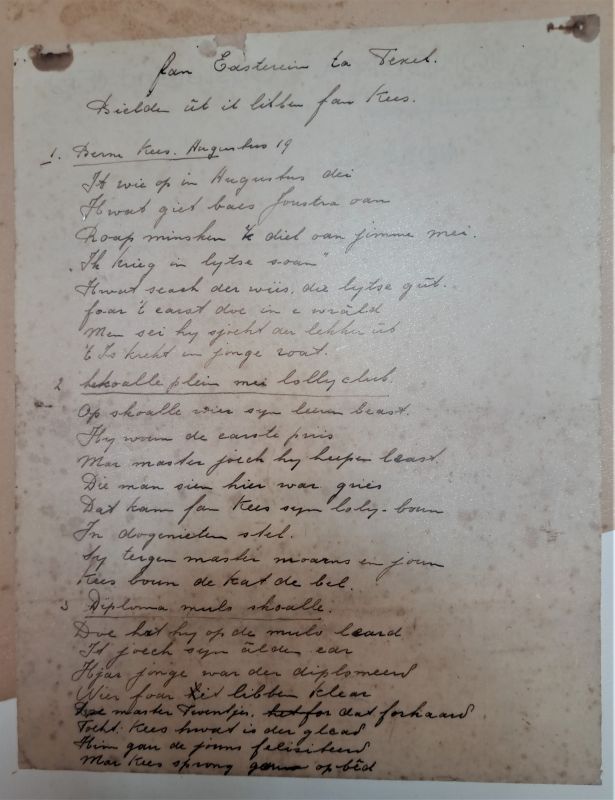 fan Easterein ta Texel.
Bielden út it libben fan Kees.
1. Berne Kees. Augustus 19
It wie op in Augustus dei
Hwat giet baes Joustra oan
Roap minsken 'k diel oan jimme mei.
"Ik krieg in lytse soan"
Hwat seach der wiis, die lytse gût.
foar 't earst doe in e wràld
Men sei hy sjocht der lekker út
't Is krekt in jonge
2 Skoalle plein mei lollyclub.
Op skoalle wier syn leren best.
Hy woun de earste priis
Mar master joech hy heepen lêast.
Die man sien hier war gries
Dat kam fan Kees syn loly-boun
In dogenieten stel.
Sy tergen master moarns en joun
Kees boun de kat de bel.
3 Diploma mulo skoalle.
Doe hat hy op de mulo leard
It joech syn âlden ear
Hjar jonge war der diplomeerd
Wier foar it libben klear
master Twentjer, dat forhaard
Tocht: Kees hwat is der glead
Him gau de jouns felisiteerd
Mar Kees sprong op bêd